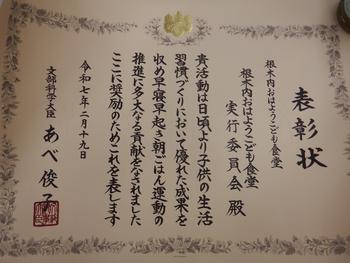 表彰状
根木内おはようこども食堂
根木内おはようこども食堂
実行委員会 殿
貴活動は日頃より子供の生活
習慣づくりにおいて優れた成果を
収め早寝早起き朝ごはん運動の
推進に多大なる貢献をなされました
ここに奨励のためこれを表します
令和七年二月十九日
文部科学大臣 あべ俊子